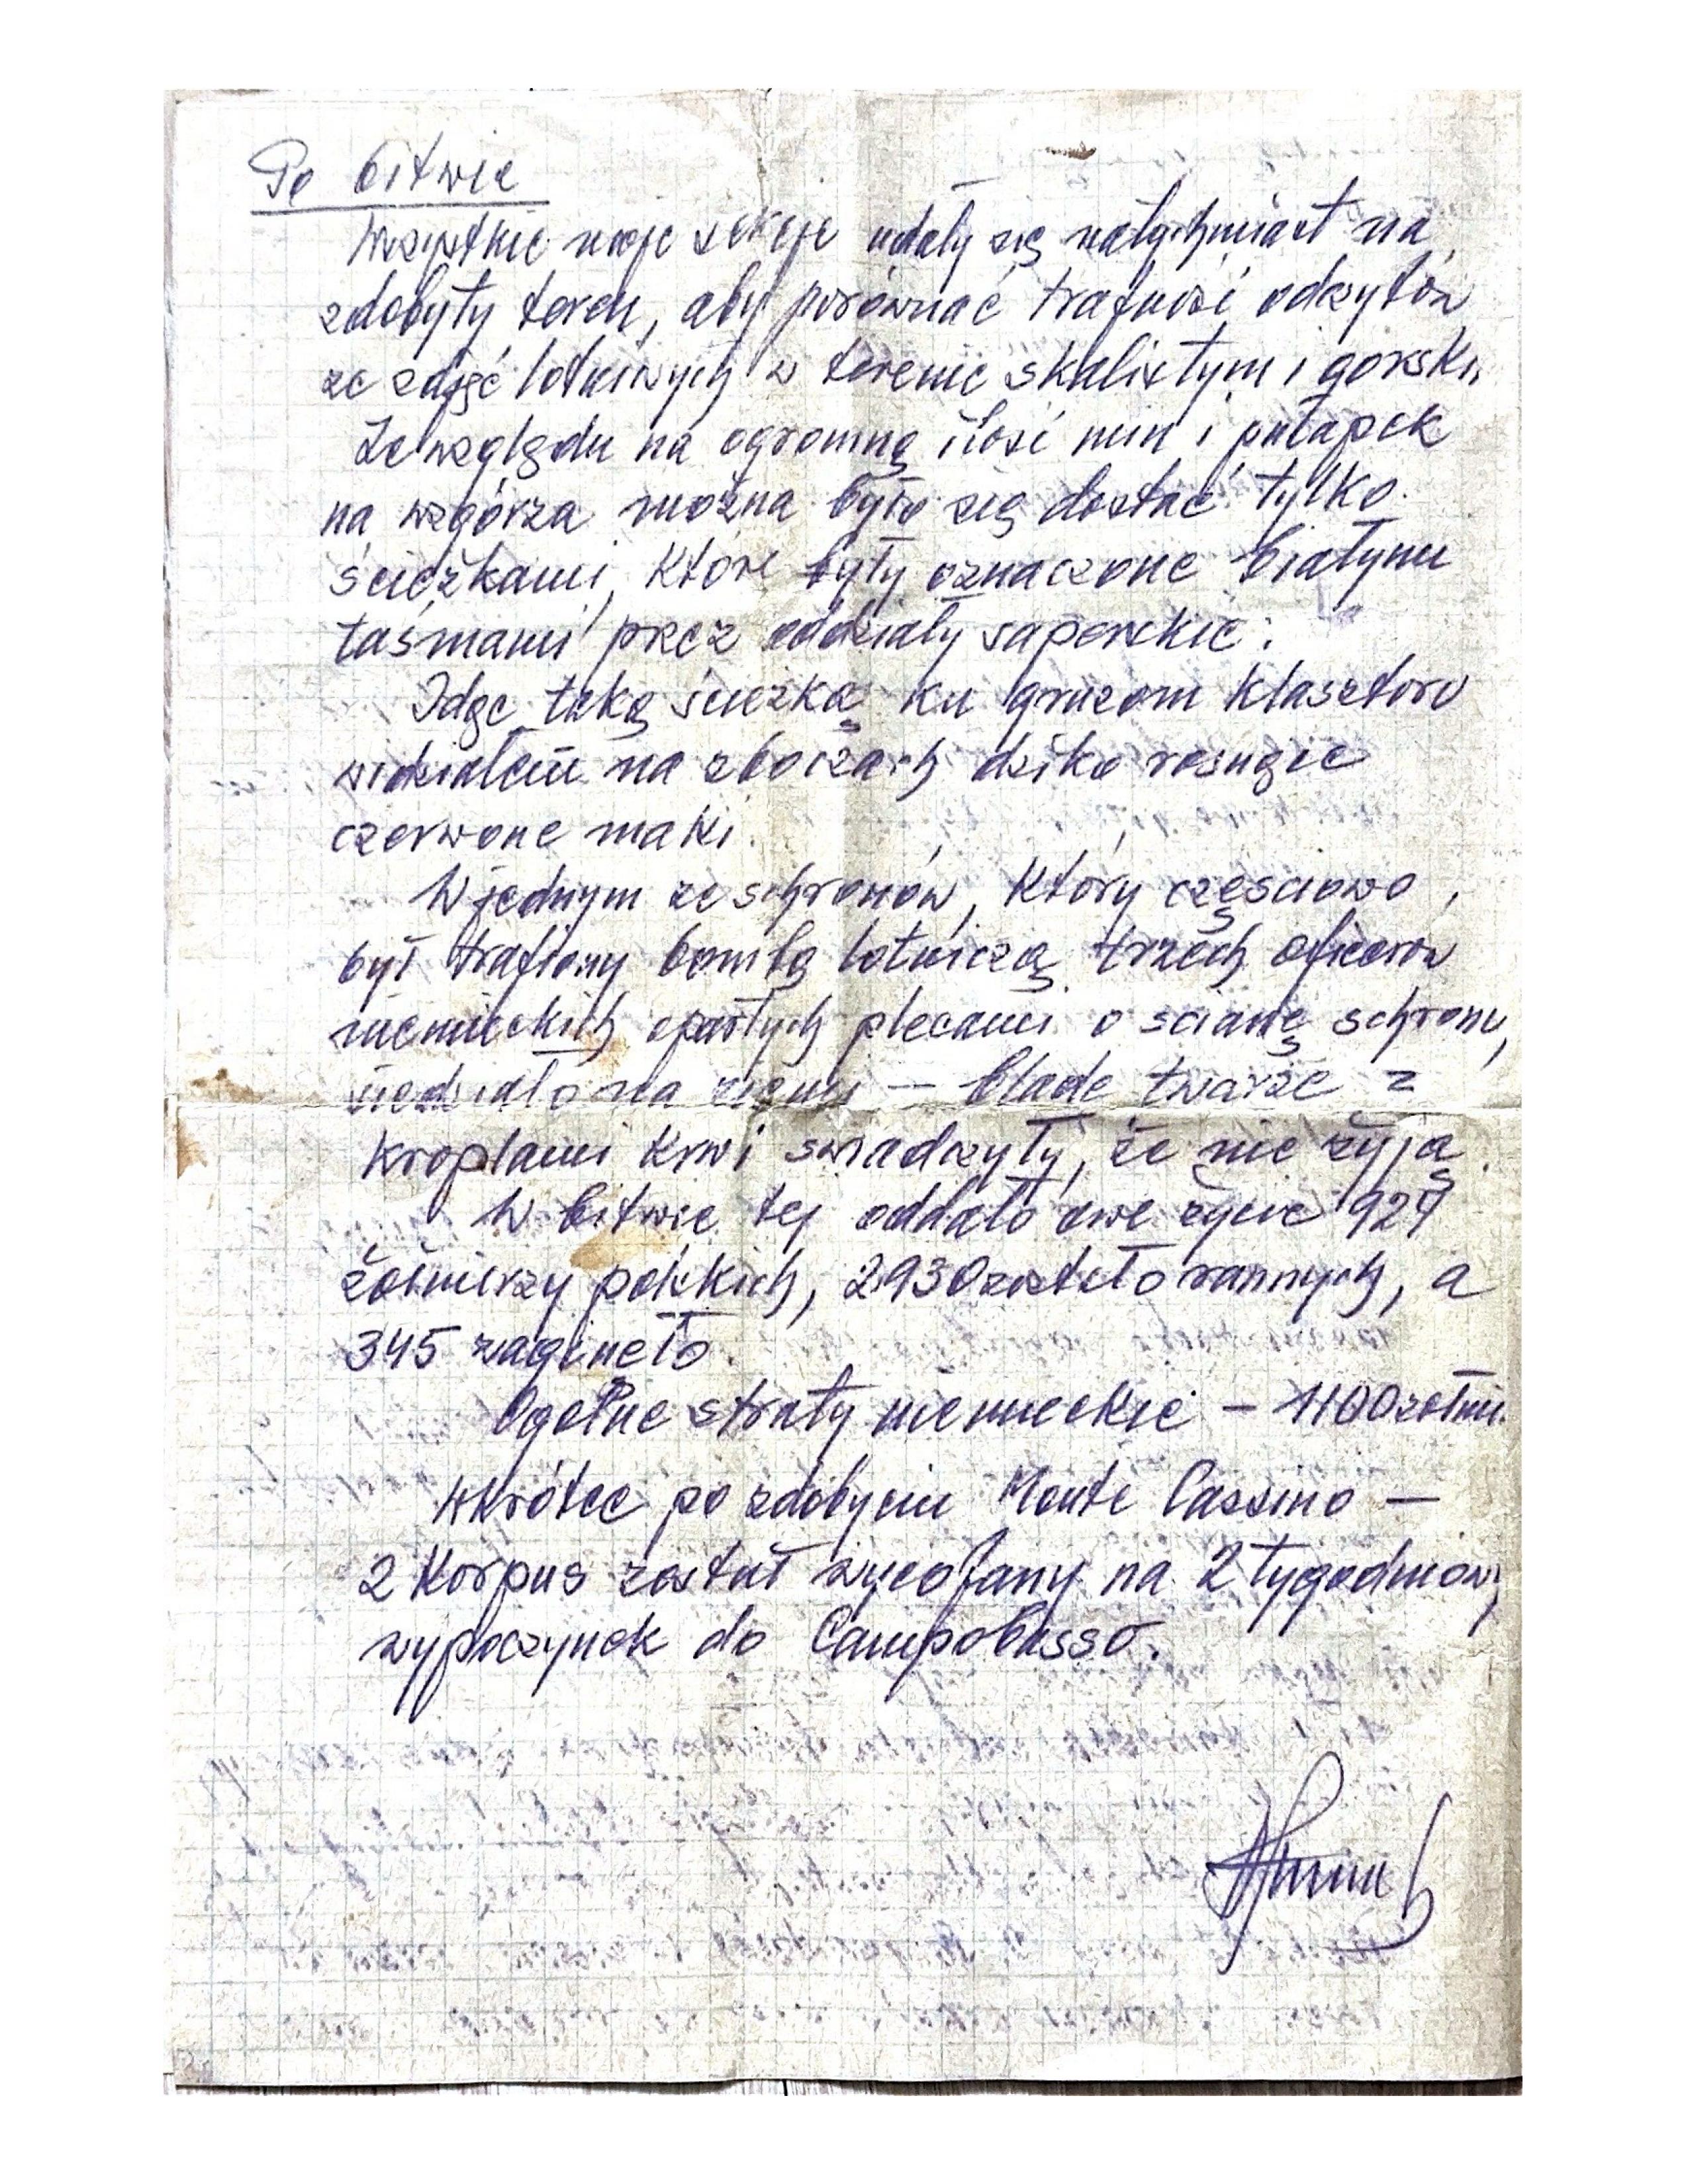 Po bitwie
Wszystkie moje sekcje udały się natychmiast na
zdobyty teren, aby porównać trafność odczytów
ze zdjęć lotniczych w terenie skalistym i górski
Ze względu na ogromną ilość min i pułapek
na wzgórza można było się dostać tylko
ścieżkami, które były oznaczone białymi
taśmami przez oddziały saperskie.
Idąc taką ścieżką ku gruzom klasztoru
widziałem na zboczach dziko rosnące
czerwone maki.
W jednym ze schronów, który częściowo
był trafiony bombą lotniczą trzech oficerów
niemieckich opartych plecami o ścianę schronu,
siedziało na ziemi – blade twarze z
kroplami krwi świadczyły, że nie żyją.
W bitwie tej oddało swe życie 924
żołnierzy polskich, 2930 zostało rannych, a
345 zaginęło.
Ogólne straty niemieckie – 1100 żołni.
Wkrótce po zdobyciu Monte Cassino –
2 Korpus został wycofany na 2 tygodniowy
wypoczynek do Campobasso.